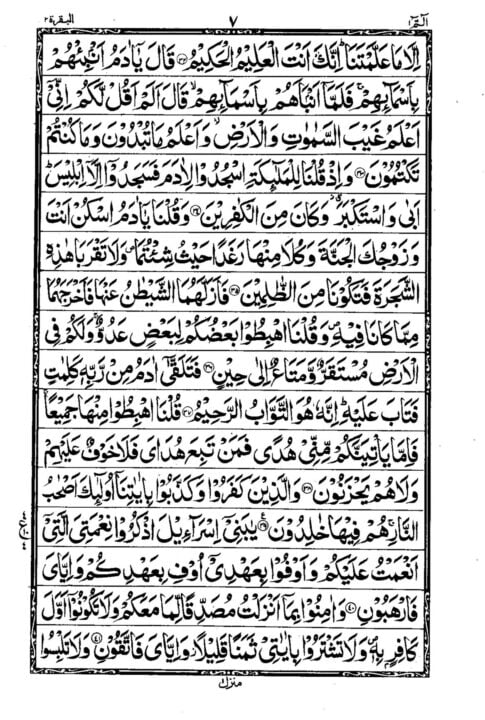 الٓمّٓ ١ ٧ البقرة ٢
اِلَّا مَا عَلَّمْتَنَا ؕ اِنَّكَ اَنْتَ الْعَلِیْمُ الْحَكِیْمُ ﴿۳۲﴾ قَالَ یٰۤاٰدَمُ اَنْۢبِئْهُمْ
بِاَسْمَآىِٕهِمْ ۚ فَلَمَّاۤ اَنْۢبَاَهُمْ بِاَسْمَآىِٕهِمْ ۙ قَالَ اَلَمْ اَقُلْ لَّكُمْ اِنِّیْۤ
اَعْلَمُ غَیْبَ السَّمٰوٰتِ وَالْاَرْضِ ۙ وَاَعْلَمُ مَا تُبْدُوْنَ وَمَا كُنْتُمْ
تَكْتُمُوْنَ ﴿۳۳﴾ وَاِذْ قُلْنَا لِلْمَلٰٓىِٕكَةِ اسْجُدُوْا لِاٰدَمَ فَسَجَدُوْۤا اِلَّاۤ اِبْلِیْسَ ؕ
اَبٰی وَاسْتَكْبَرَ ٭ۗ وَكَانَ مِنَ الْكٰفِرِیْنَ ﴿۳۴﴾ وَقُلْنَا یٰۤاٰدَمُ اسْكُنْ اَنْتَ
وَزَوْجُكَ الْجَنَّةَ وَكُلَا مِنْهَا رَغَدًا حَیْثُ شِئْتُمَا ۪ وَلَا تَقْرَبَا هٰذِهِ
الشَّجَرَةَ فَتَكُوْنَا مِنَ الظّٰلِمِیْنَ ﴿۳۵﴾ فَاَزَلَّهُمَا الشَّیْطٰنُ عَنْهَا فَاَخْرَجَهُمَا
مِمَّا كَانَا فِیْهِ ۪ وَقُلْنَا اهْبِطُوْا بَعْضُكُمْ لِبَعْضٍ عَدُوٌّ ۚ وَلَكُمْ فِی
الْاَرْضِ مُسْتَقَرٌّ وَّمَتَاعٌ اِلٰی حِیْنٍ ﴿۳۶﴾ فَتَلَقّٰۤی اٰدَمُ مِنْ رَّبِّهٖ كَلِمٰتٍ
فَتَابَ عَلَیْهِ ؕ اِنَّهٗ هُوَ التَّوَّابُ الرَّحِیْمُ ﴿۳۷﴾ قُلْنَا اهْبِطُوْا مِنْهَا جَمِیْعًا ۚ
فَاِمَّا یَاْتِیَنَّكُمْ مِّنِّیْ هُدًی فَمَنْ تَبِعَ هُدَایَ فَلَا خَوْفٌ عَلَیْهِمْ
وَلَا هُمْ یَحْزَنُوْنَ ﴿۳۸﴾ وَالَّذِیْنَ كَفَرُوْا وَكَذَّبُوْا بِاٰیٰتِنَاۤ اُولٰٓىِٕكَ اَصْحٰبُ
النَّارِ ۚ هُمْ فِیْهَا خٰلِدُوْنَ ﴿۳۹﴾ یٰبَنِیْۤ اِسْرَآءِیْلَ اذْكُرُوْا نِعْمَتِیَ الَّتِیْۤ
اَنْعَمْتُ عَلَیْكُمْ وَاَوْفُوْا بِعَهْدِیْۤ اُوْفِ بِعَهْدِكُمْ ۚ وَاِیَّایَ
فَارْهَبُوْنِ ﴿۴۰﴾ وَاٰمِنُوْا بِمَاۤ اَنْزَلْتُ مُصَدِّقًا لِّمَا مَعَكُمْ وَلَا تَكُوْنُوْۤا اَوَّلَ
كَافِرٍۭ بِهٖ ۪ وَلَا تَشْتَرُوْا بِاٰیٰتِیْ ثَمَنًا قَلِیْلًا ؗ وَّاِیَّایَ فَاتَّقُوْنِ ﴿۴۱﴾ وَلَا تَلْبِسُوا
منزل